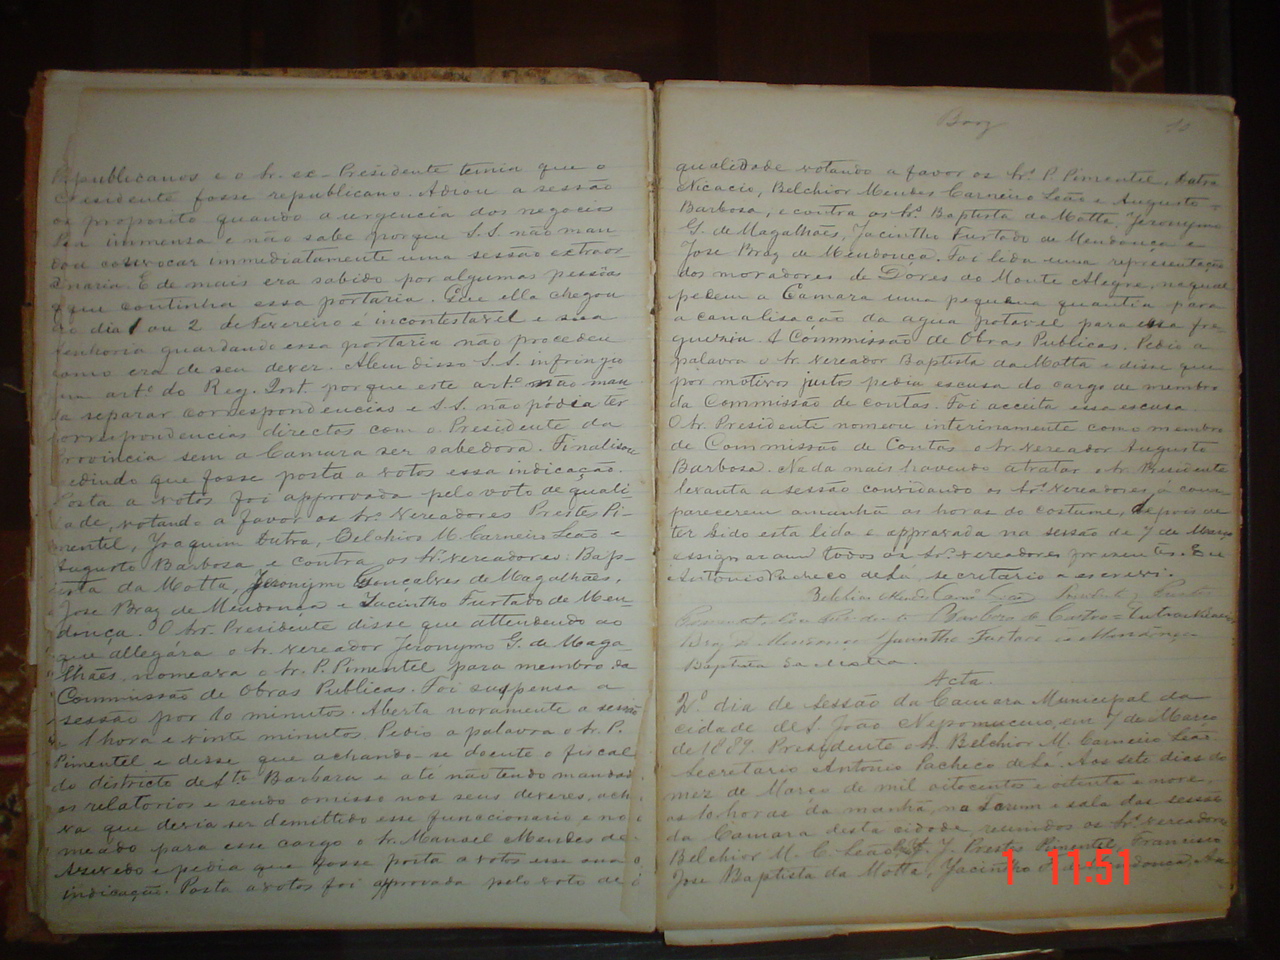 Republicanos e o Sr. ex-Presidente temia que o
Presidente fosse republicano. Adiou a sessão
de proposito quando a urgencia dos negocios
immensa e não sabe porque S.S. não man
dou convocar immediatamente uma sessão extraor
dinaria. E de mais era sabido por algumas pessôas
o que continha essa portaria. Que ella chegou
no dia 1 ou 2 de Fevereiro é incontestavel e sua
senhoria guardando essa portaria não procedeu
como era de seu dever. Alem disso S.S. infringio
um artº do Reg. Post. porque este artº não man
da separar correspondencias e S.S. não pódia ter
correspondencias directas com o Presidente da
Provincia sem a Camara ser sabedora. Finalisou
pedindo que fosse posta a votos essa indicação.
Posta a votos foi approvada pelo voto de quali-
dade, votando a favor os Srs. Vereadores Prestes Pi-
mentel, Joaquim Dutra, Belchior M. Carneiro Leão e
Augusto Barbosa, e contra os Srs. Vereadores: Bap-
tista da Motta, Jeronymo Gonçalves de Magalhães,
José Braz de Mendonça e Jacintho Furtado de Men-
donça. O Sr. Presidente disse que attendendo ao
que allegára o Sr. vereador Jeronymo G. de Maga-
lhães, nomeava o Sr. P. Pimentel para membro da
Commissão de Obras Publicas. Foi suspensa a
sessão por 10 minutos. Aberta novamente a sessão
a 1 hora e vinte minutos. Pedio a palavra o Sr. P.
Pimentel e disse que achando-se doente o fiscal
do districto de Sta. Barbara e até não tendo mandado
os relatorios e sendo omisso nos seus deveres, acha
va que devia ser demittido esse funccionario e no
meado para esse cargo o Sr. Manoel Mendes de
Azevedo e pedia que fosse posta a votos essa sua
indicação. Posta a votos foi approvada pelo voto de
Braz
qualidade votando a favor os Srs. P. Pimentel, Dutra
Nicacio, Belchior Mendes Carneiro Leão e Augusto
Barbosa, e contra os Srs. Baptista da Motta, Jeronymo
G. de Magalhães, Jacintho Furtado de Mendonça e
José Braz de Mendonça. Foi lida uma representação
dos moradores de Dores do Monte Alegre, na qual
pedem a Camara uma pequena quantia para
a canalisação da agua potavel para essa fre
guezia. A Commissão de Obras Publicas. Pedio a
palavra o Sr. Vereador Baptista da Motta e disse que
por motivos justos pedia escusa do cargo de membro
da Commissão de contas. Foi acceita essa escusa.
O Sr. Presidente nomeou interinamente como membro
de Commissão de Contas o Sr. Vereador Augusto
Barbosa. Nada mais havendo a tratar o Sr. Presidente
levanta a sessão convidando os Srs. Vereadores á com-
parecerem amanhã as horas do costume, depois de
ter sido esta lida e approvada na sessão de 7 de Março
assignaram todos os Srs. vereadores presentes. Eu
Antonio Pacheco de Sá secretario a escrevi.
Belchior Mendes Carnº Leão, Presidente, Prestes
Pimentel Barbosa de Castro = Dutra Nicacio
Braz de Mendonça Jacintho Furtado de Mendonça
Baptista da Motta.
Acta.
2º. dia de Sessão da Camara Municipal da
cidade de S. João Nepomuceno, em 7 de Março
de 1889. Presidente o Sr. Belchior M. Carneiro Leão.
Secretario Antonio Pacheco de Sá. Aos sete dias do
mez de Março de mil oitocentos e oitenta e nove,
as 10 horas da manhã, na Forum e sala das sessões
da Camara desta cidade, reunidos os Srs. vereadores
Belchior M. C. Leão, J. Prestes Pimentel, Francisco
José Baptista da Motta, Jacintho F. de Mendonça, Au
1 11:51